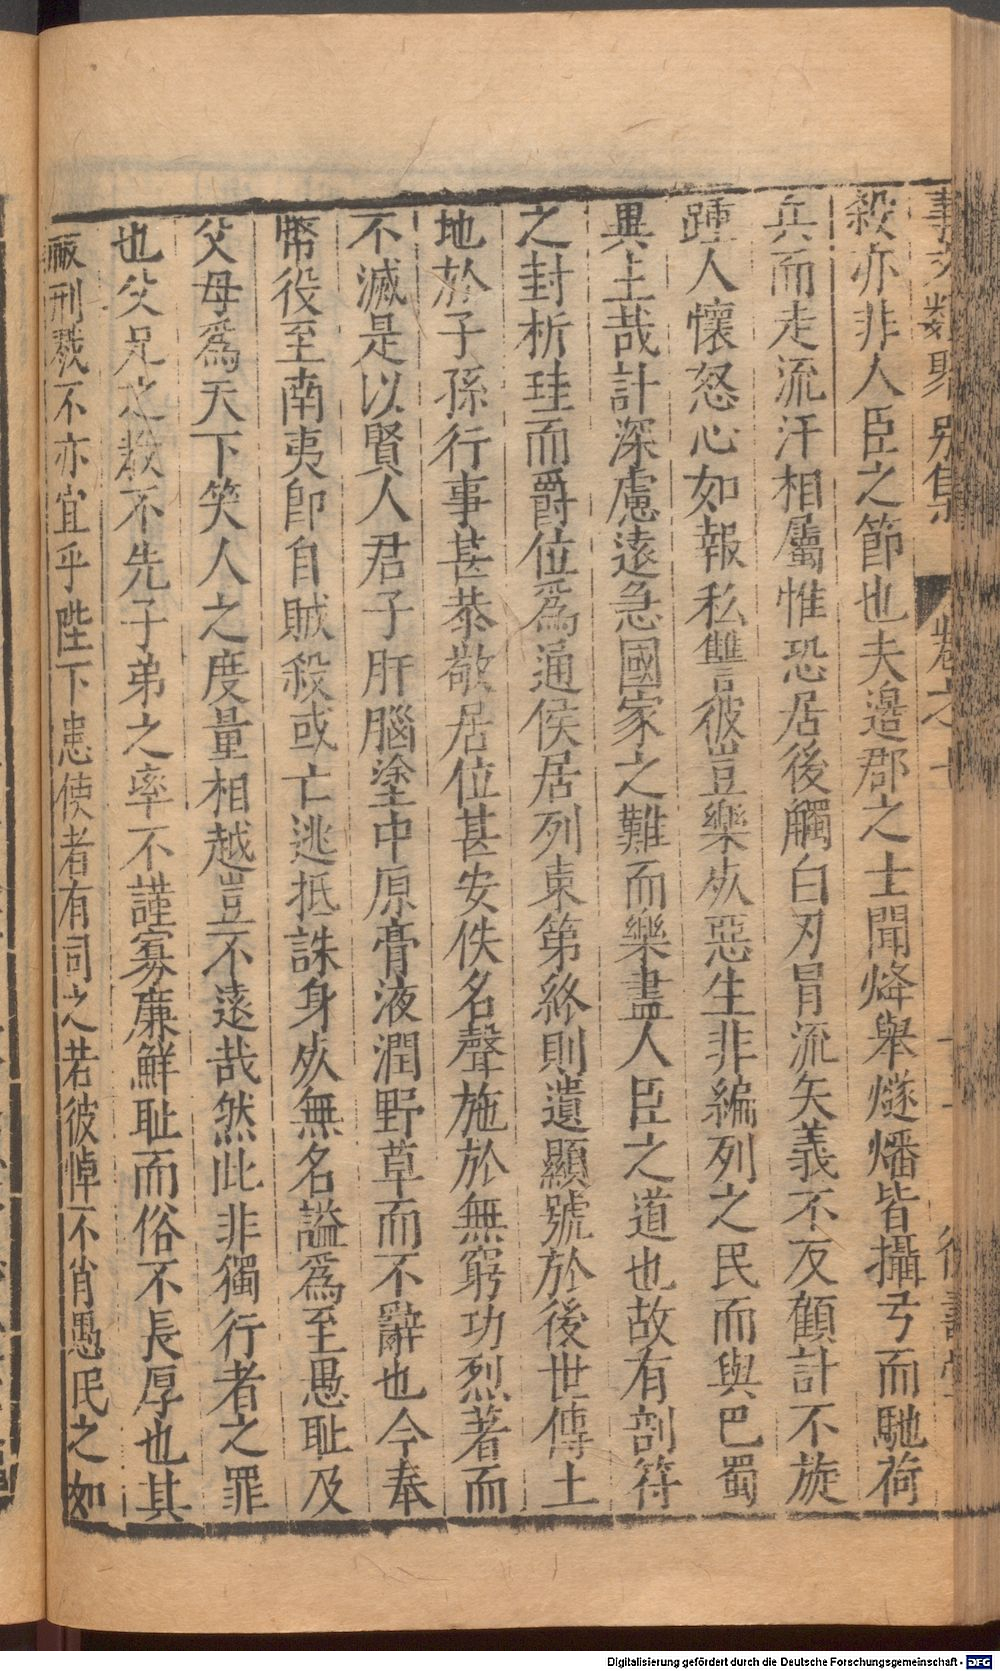 事文類聚別集 卷之十 德壽堂
殺亦非人臣之節也夫邉郡之士聞烽舉燧燔皆攝弓而馳荷
兵而走流汗相屬惟恐居後觸白刃冒流矢義不反顧計不旋
踵人懷怒心如報私讐彼豈樂死惡生非編列之民而與巴蜀
異主哉計深慮遠急國家之難而樂盡人臣之道也故有剖符
之封析珪而爵位爲通侯居列東第終則遺顯號於後世傳土
地於子孫行事甚恭敬居位甚安佚名聲施於無窮功烈著而
不滅是以賢人君子肝腦塗中原膏液潤野草而不辭也今奉
幣役至南夷卽自賊殺或亡逃抵誅身死無名謚爲至愚耻及
父母爲天下笑人之度量相越豈不遠哉然此非獨行者之罪
也父兄之教不先子弟之率不謹寡廉鮮耻而俗不長厚也其
被刑戮不亦宜乎陛下患使者有司之若彼悼不肖愚民之如
Digitalisierung gefördert durch die Deutsche Forschungsgemeinschaft - DFG